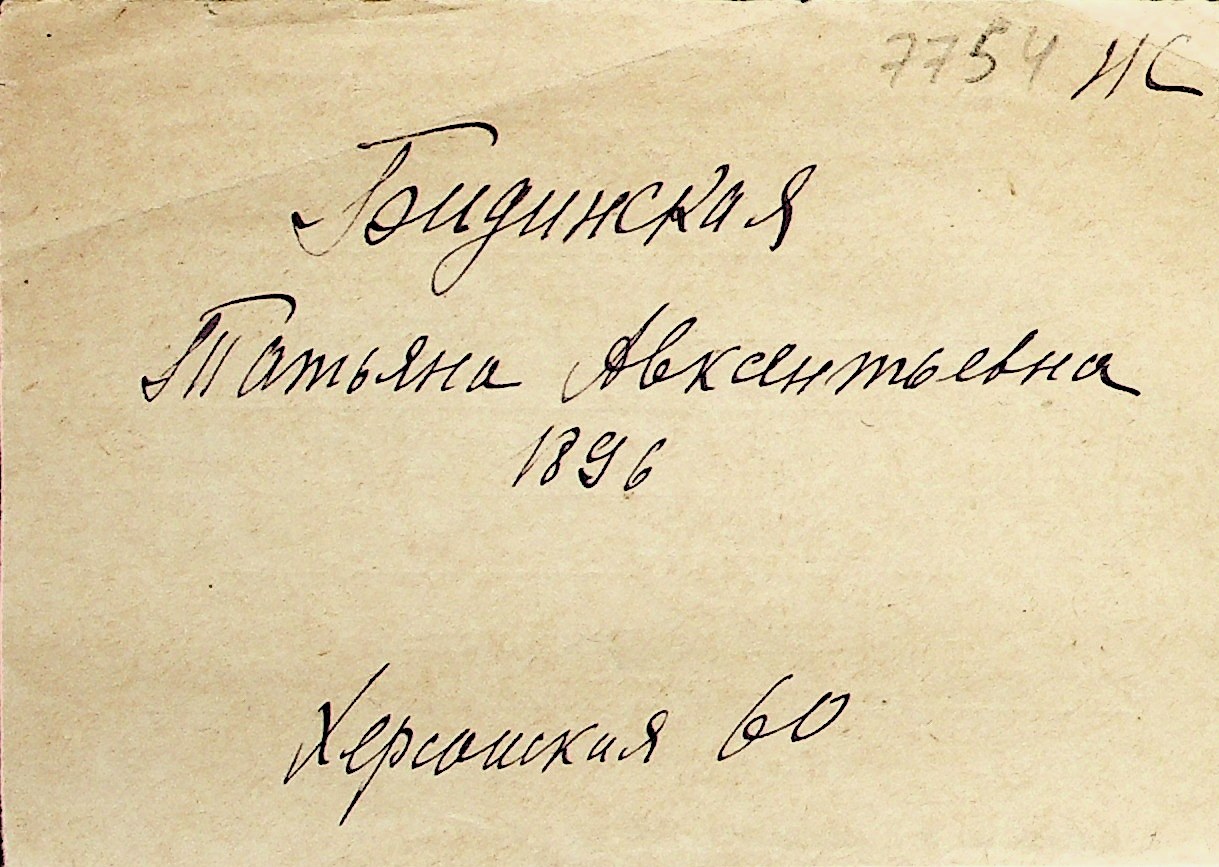 7754 НС
Бидинская
Татьяна Авксентьевна
1896
Херсонская 60